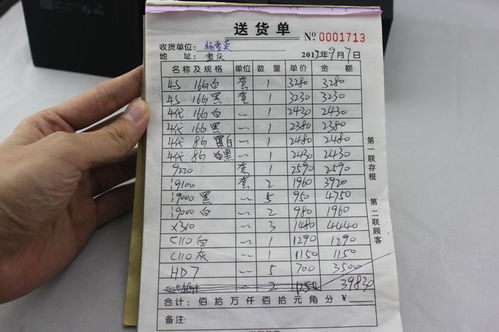 送货单
№ 0001713
收货单位:
2012年9月7日
地 址: 重庆
名称及规格 单位 数量 单价 金额
4S 16G白 套 1 3280 3280
4S 16G黑 套 1 3230 3230
4代 16G白 一 1 2430 2430
4代 16G黑 一 1 2380 2380
4代 8G 黑白 一 1 2480 2480
4代 8G 白黑 一 1 2430 2430
9220 套 1 2590 2590
i9100 套 2 1960 3920
i9000 黑 一 5 950 4750
i9000 白 一 2 980 1960
X310 一 3 1480 4440
C110 白 一 1 1290 1290
C110 灰 一 1 1150 1150
HD7 一 5 700 3500
2 1250 39830
合计: 佰 拾 万 仟 佰 拾 元 角 分 ¥
备注:
第一联存根 第二联顾客